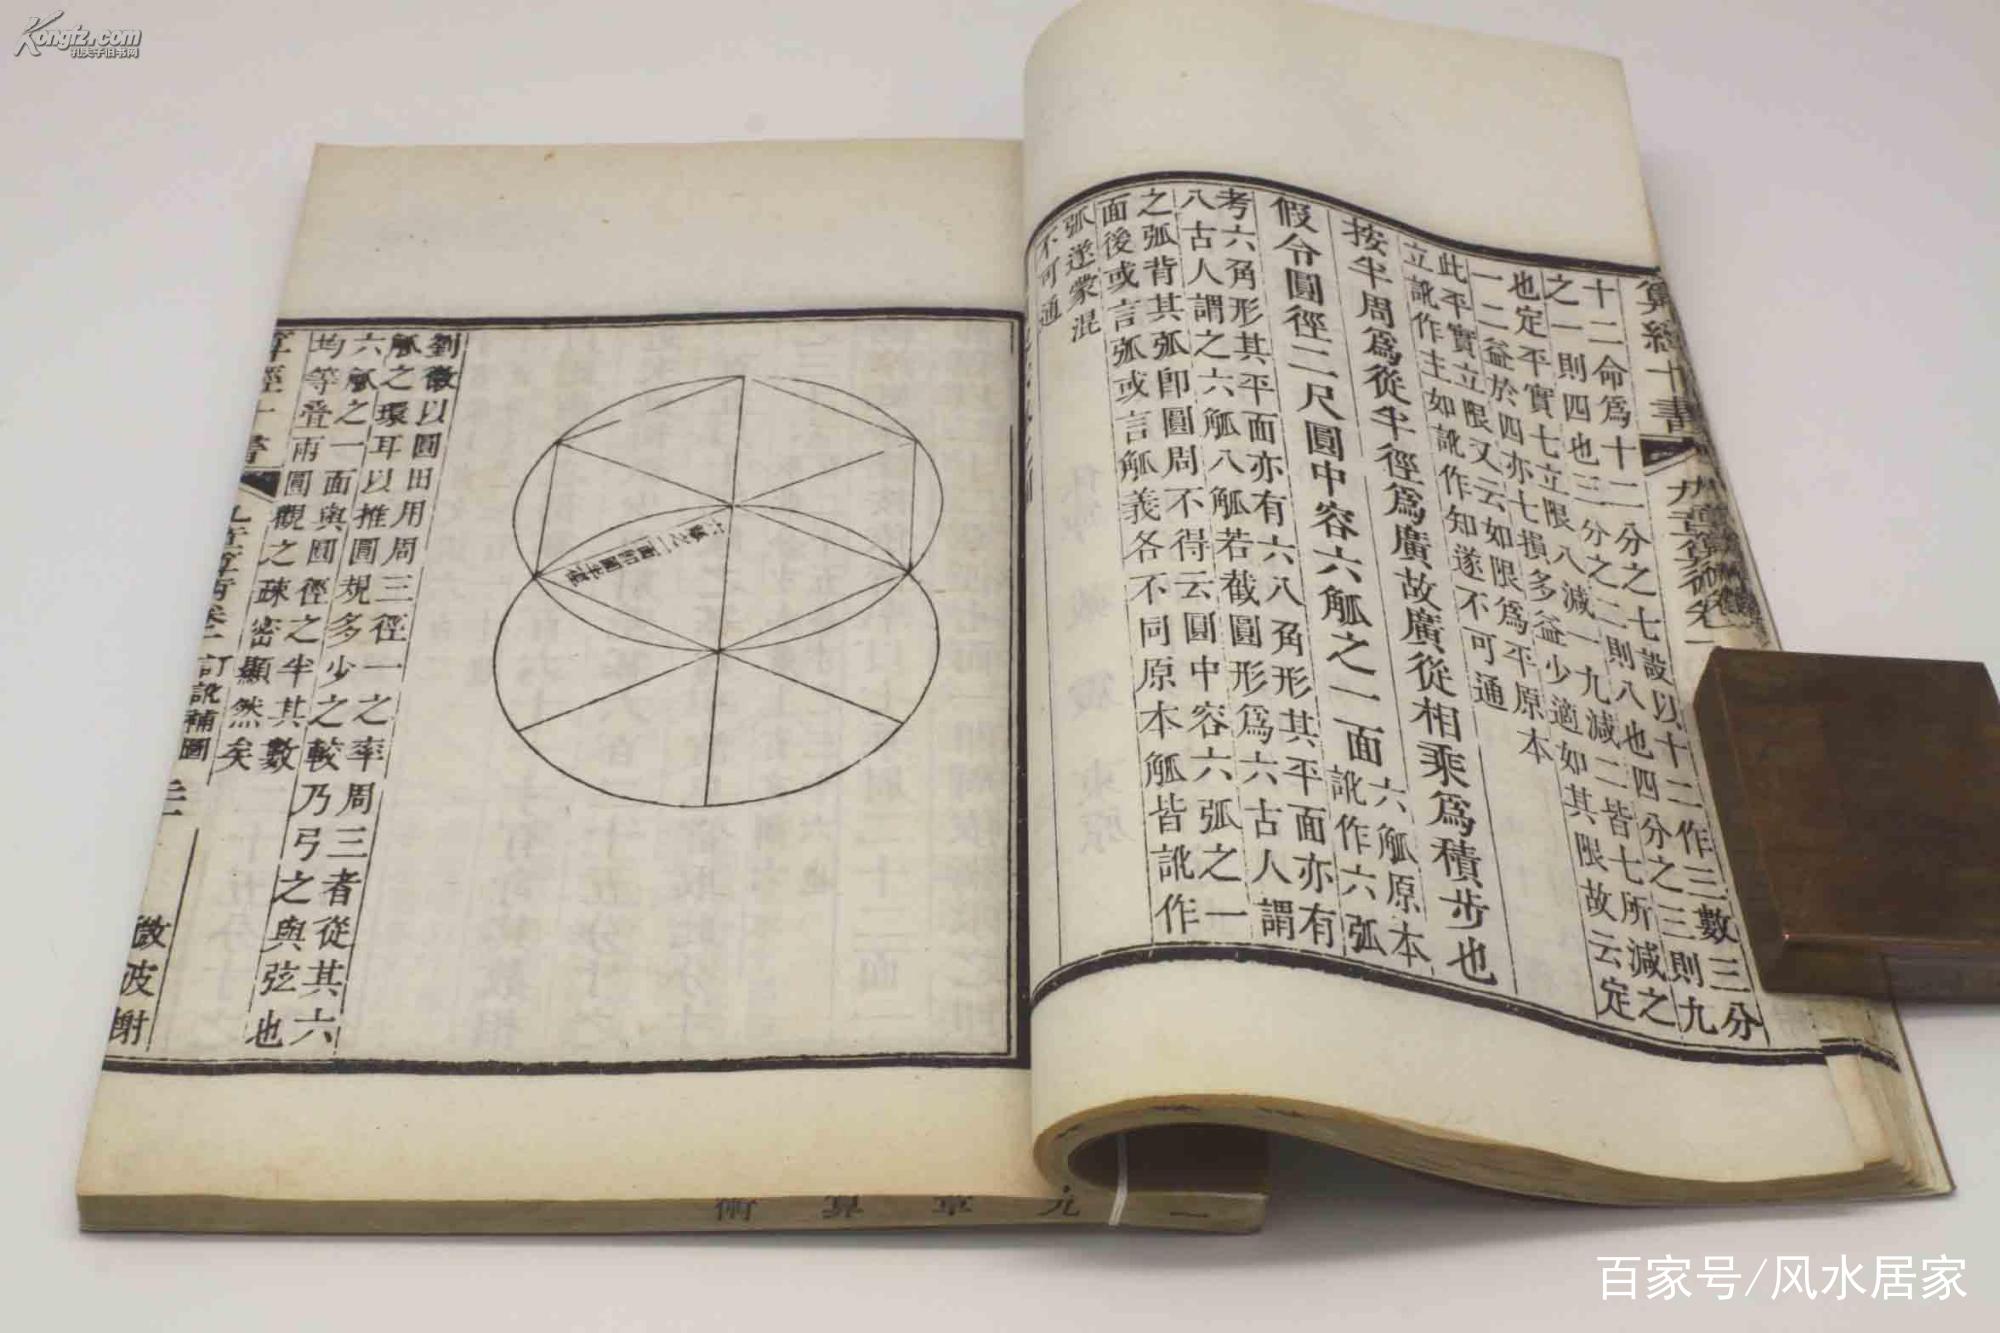 Kongfz.com
孔夫子旧书网
算經十書
九章算術卷一
十二命為十二分之七設以十二作三數三分
之一則四也三分之二則八也四分之三則九
也定平實七立限八減一九減二皆七所減之
一二益於四亦七損多益少適如其限故云定
此平實立限又云如限為平原本
立訛作主如訛作知遂不可通
按半周爲從半徑爲廣故廣從相乘爲積步也
假令圓徑二尺圓中容六觚之一面
六觚原本
訛作六弧
考六角形其平面亦有六八角形其平面亦有
八古人謂之六觚八觚若截圓形爲六古人謂
之弧背其弧卽圓周不得云圓中容六弧之一
面後或言弧或言觚義各不同原本觚皆訛作
弧遂蒙混
不可通
六觚之一面即圓半徑
劉徽以圓田用周三徑一之率周三者從其六
觚之環耳以推圓規多少之較乃弓之與弦也
六觚之一面與圓徑之半其數
均等疊兩圓觀之疎密顯然矣
算經十書
九章算術卷一
訂訛補圖
微波榭
一九章算術
百家号/风水居家